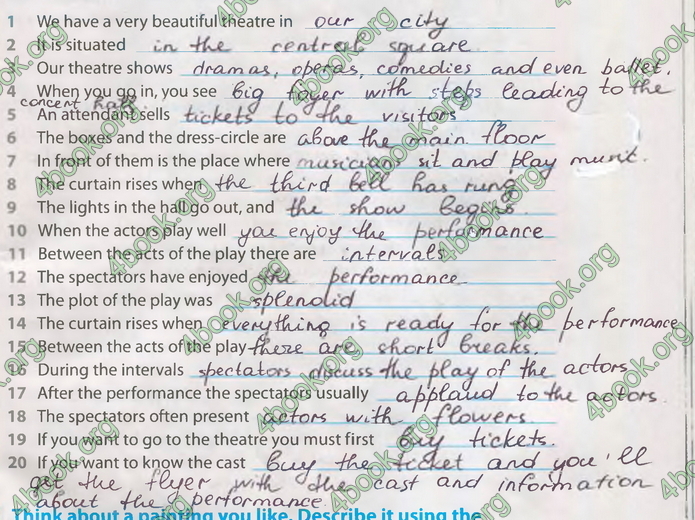 1 We have a very beautiful theatre in our city
2 It is situated in the central square.
3 Our theatre shows dramas, operas, comedies and even ballet.
4 When you go in, you see big foyer with steps leading to the
concert hall
5 An attendant sells tickets to the visitors
6 The boxes and the dress-circle are above the main floor
7 In front of them is the place where musicians sit and play music.
8 The curtain rises when the third bell has rung
9 The lights in the hall go out, and the show begins.
10 When the actors play well you enjoy the performance
11 Between the acts of the play there are intervals
12 The spectators have enjoyed the performance
13 The plot of the play was splendid
14 The curtain rises when everything is ready for the performance
15 Between the acts of the play there are short breaks.
16 During the intervals spectators discuss the play of the actors
17 After the performance the spectators usually applaud to the actors.
18 The spectators often present actors with flowers.
19 If you want to go to the theatre you must first buy tickets.
20 If you want to know the cast buy the ticket and you'll
get the flyer with the cast and information
about the performance.
Think about a painting you like. Describe it using the
4book.org